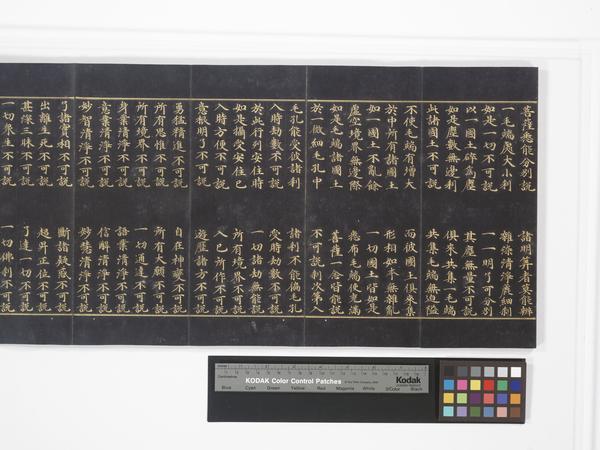 菩薩悉能分別說 諸明算者莫能辨
一毛端處大小刹 雜染清淨麁細刹
如是一切不可說 一一明了可分別
以一國土碎為塵 其塵無量不可說
如是塵數無邊刹 俱來共集一毛端
此諸國土不可說 共集毛端無迫隘
不使毛端有增大 而彼國土俱來集
於中所有諸國土 形相如本無雜亂
如一國土不亂餘 一切國土皆如是
虛空境界無邊際 悉布毛端使充滿
如是毛端諸國土 菩薩一念皆能說
於一微細毛孔中 不可說刹次第入
毛孔能受彼諸刹 諸刹不能徧毛孔
入時劫數不可說 受時劫數不可說
於此行列安住時 一切諸劫無能說
如是攝受安住已 所有境界不可說
入時方便不可說 入已所作不可說
意根明了不可說 遊歷諸方不可說
勇猛精進不可說 自在神變不可說
所有思惟不可說 所有大願不可說
所有境界不可說 一切通達不可說
身業清淨不可說 語業清淨不可說
意業清淨不可說 信解清淨不可說
妙智清淨不可說 妙慧清淨不可說
了諸實相不可說 斷諸疑惑不可說
出離生死不可說 超昇正位不可說
甚深三昧不可說 了達一切不可說
一切衆生不可說 一切佛刹不可說
KODAK Color Control Patches Kodak
Blue Cyan Green Yellow Red Magenta White 3/Color Black